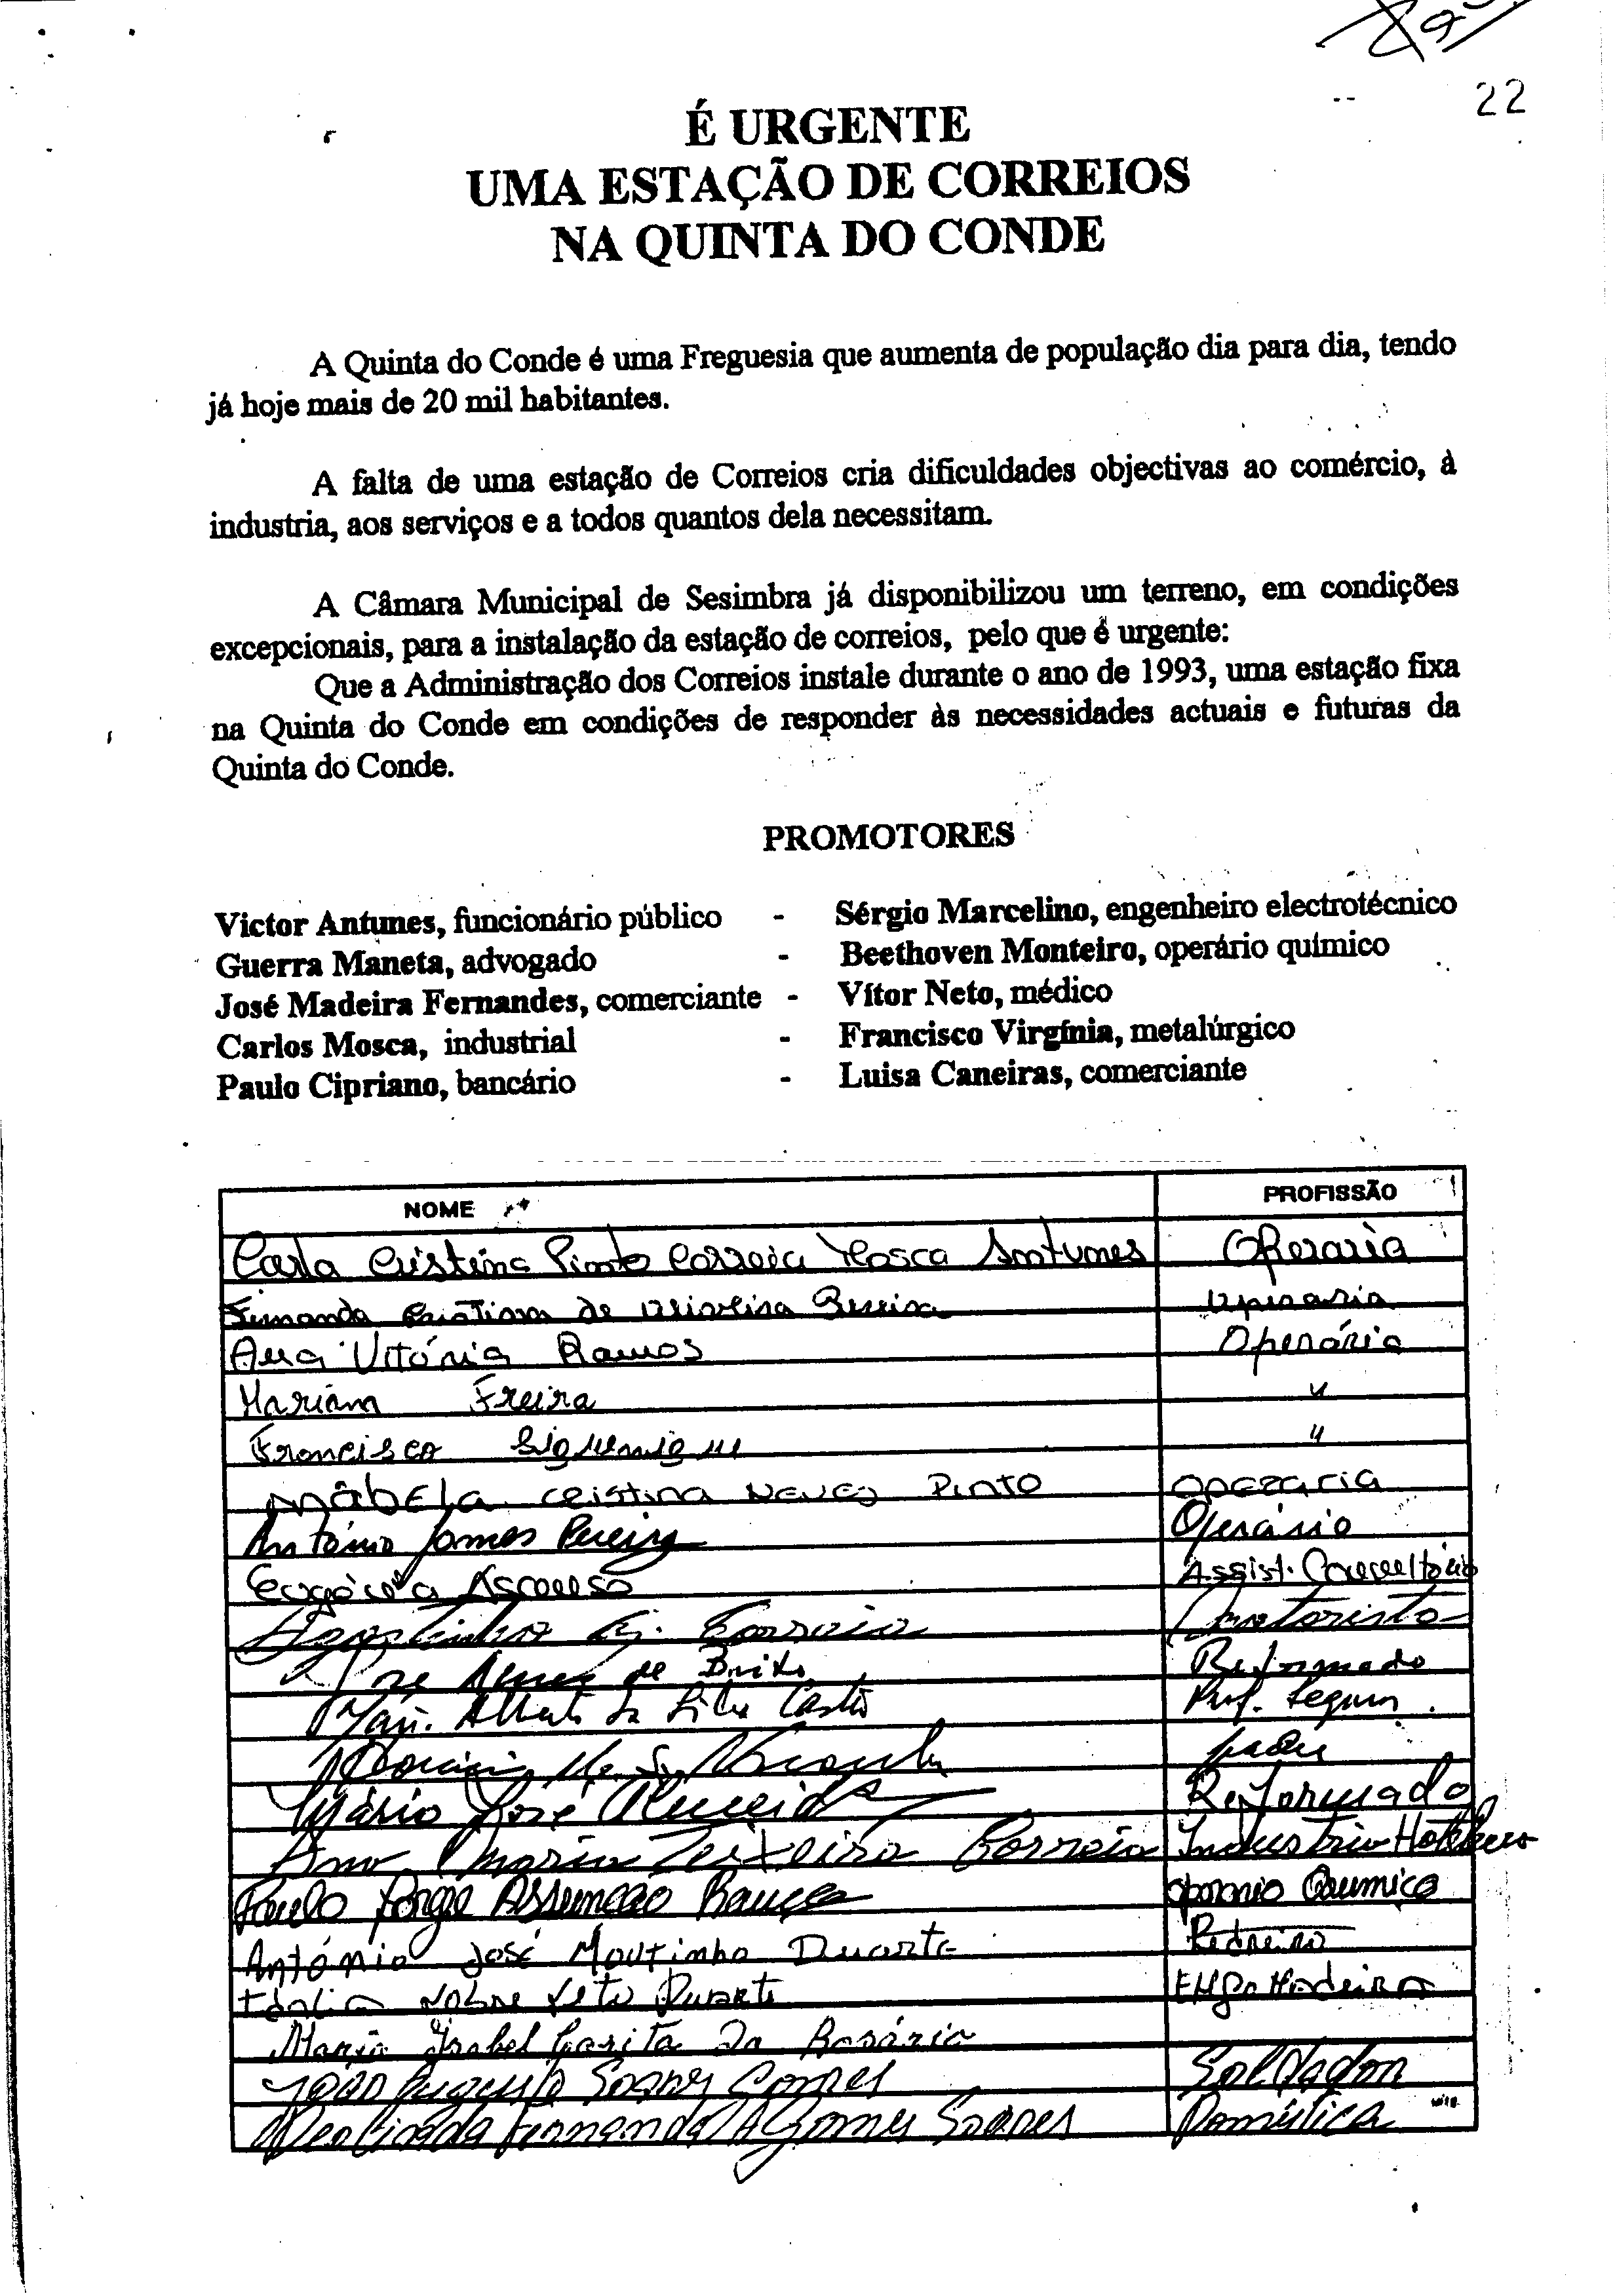 22
É URGENTE
UMA ESTAÇÃO DE CORREIOS
NA QUINTA DO CONDE
A Quinta do Conde é uma Freguesia que aumenta de população dia para dia, tendo
já hoje mais de 20 mil habitantes.
A falta de uma estação de Correios cria dificuldades objectivas ao comércio, à
industria, aos serviços e a todos quantos dela necessitam.
A Câmara Municipal de Sesimbra já disponibilizou um terreno, em condições
excepcionais, para a instalação da estação de correios, pelo que é urgente:
Que a Administração dos Correios instale durante o ano de 1993, uma estação fixa
na Quinta do Conde em condições de responder às necessidades actuais e futuras da
Quinta do Conde.
PROMOTORES
Victor Antunes, funcionário público - Sérgio Marcelino, engenheiro electrotécnico
Guerra Maneta, advogado - Beethoven Monteiro, operário químico
José Madeira Fernandes, comerciante - Vítor Neto, médico
Carlos Mosca, industrial - Francisco Virgínia, metalúrgico
Paulo Cipriano, bancário - Luisa Caneiras, comerciante
NOME PROFISSÃO
Carla Cristina Pinto Correia Mosca Antunes Operaria
Fernanda Cristina de Oliveira Pereira operaria
Ana Vitória Ramos Operária
Mariana Freira "
Francisco "
Mabela Cristina Neves Pinto operaria
António Gomes Pereira Operário
Eugénia Ascenso Assist. Consultório
Agostinho G. Correia motorista
José Nunes de Brito Reformado
Alberto da Silva Castro Prof.
Mário José Almeida Reformado
Ana Maria Teixeira Correia Industria Hoteleira
Paulo Jorge Assunção operario Quimico
António José Moutinho Duarte Pedreiro
Nobre Neto Duarte
Maria Isabel Garita do Rosário
João Augusto Soares Gomes Soldador
Fernanda A Gomes Soares Doméstica